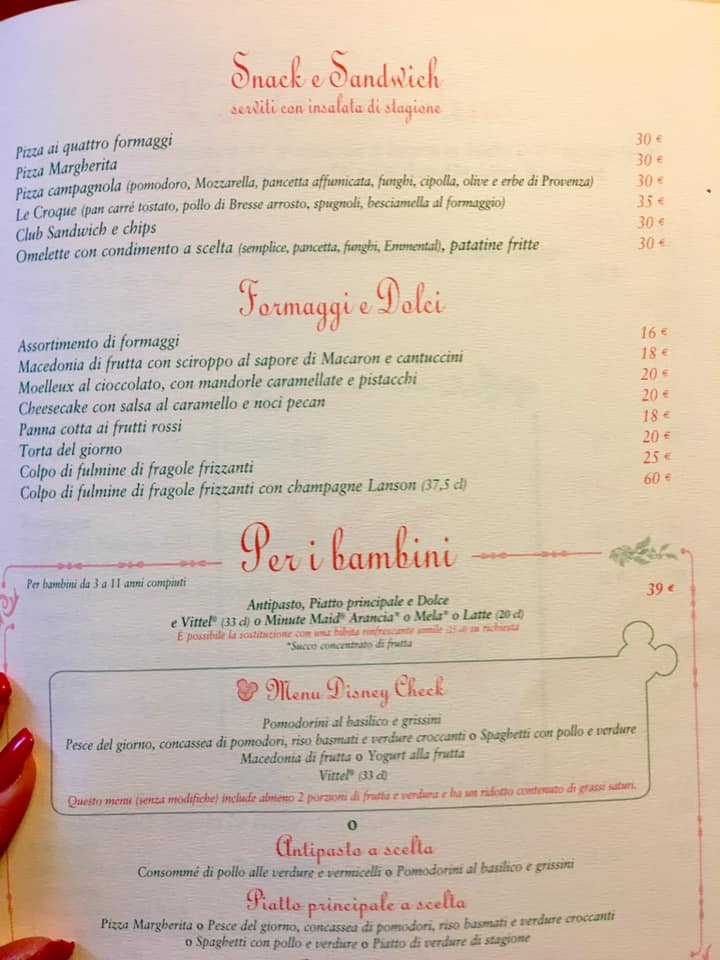 Snack e Sandwich
serviti con insalata di stagione
Pizza ai quattro formaggi 30 €
Pizza Margherita 30 €
Pizza campagnola (pomodoro, Mozzarella, pancetta affumicata, funghi, cipolla, olive e erbe di Provenza) 30 €
Le Croque (pan carré tostato, pollo di Bresse arrosto, spugnoli, besciamella al formaggio) 35 €
Club Sandwich e chips 30 €
Omelette con condimento a scelta (semplice, pancetta, funghi, Emmental), patatine fritte 30 €
Formaggi e Dolci
Assortimento di formaggi 16 €
Macedonia di frutta con sciroppo al sapore di Macaron e cantuccini 18 €
Moelleux al cioccolato, con mandorle caramellate e pistacchi 20 €
Cheesecake con salsa al caramello e noci pecan 20 €
Panna cotta ai frutti rossi 18 €
Torta del giorno 20 €
Colpo di fulmine di fragole frizzanti 25 €
Colpo di fulmine di fragole frizzanti con champagne Lanson (37,5 cl) 60 €
Per i bambini
Per bambini da 3 a 11 anni compiuti
Antipasto, Piatto principale e Dolce 39 €
e Vittel® (33 cl) o Minute Maid® Arancia* o Mela* o Latte (20 cl)
È possibile la sostituzione con una bibita rinfrescante simile (25 cl) su richiesta
*Succo concentrato di frutta
Menu Disney Check
Pomodorini al basilico e grissini
Pesce del giorno, concassea di pomodori, riso basmati e verdure croccanti o Spaghetti con pollo e verdure
Macedonia di frutta o Yogurt alla frutta
Vittel® (33 cl)
Questo menu (senza modifiche) include almeno 2 porzioni di frutta e verdura e ha un ridotto contenuto di grassi saturi.
o
Antipasto a scelta
Consommé di pollo alle verdure e vermicelli o Pomodorini al basilico e grissini
Piatto principale a scelta
Pizza Margherita o Pesce del giorno, concassea di pomodori, riso basmati e verdure croccanti
o Spaghetti con pollo e verdure o Piatto di verdure di stagione